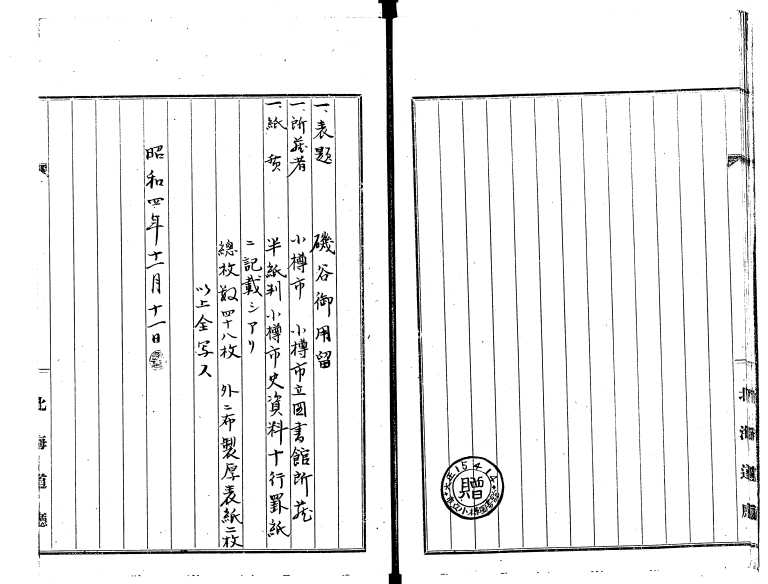 一、表題　磯谷御用留
一、所蔵者　小樽市　小樽市立図書館所蔵
一、紙質　半紙判小樽市史資料十行罫紙
ニ記載シアリ
總枚数四十八枚　外ニ布製厚表紙二枚
以上全写ス
昭和四年十一月十一日
北海道廳
北海道廳
大正15.4.14
贈